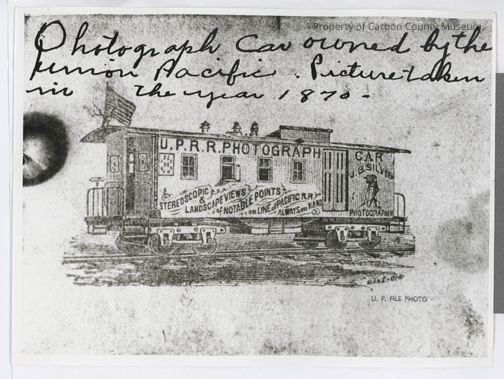 Property of Carbon County Museum
Photograph Car owned by the
Union Pacific. Picture taken
in the year 1870-
U.P.R.R. PHOTOGRAPH CAR
J.B. SILVIS
STEREOSCOPIC
&
LANDSCAPE VIEWS
of NOTABLE POINTS
on LINE of PACIFIC R.R.
ALWAYS on HAND
PHOTOGRAPHER
U. P. FILE PHOTO